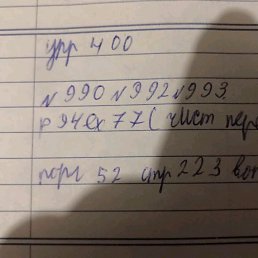 упр 400
№990 №992 №993
р 94 ex 77 ( чист пер
парг 52 стр 223 воп